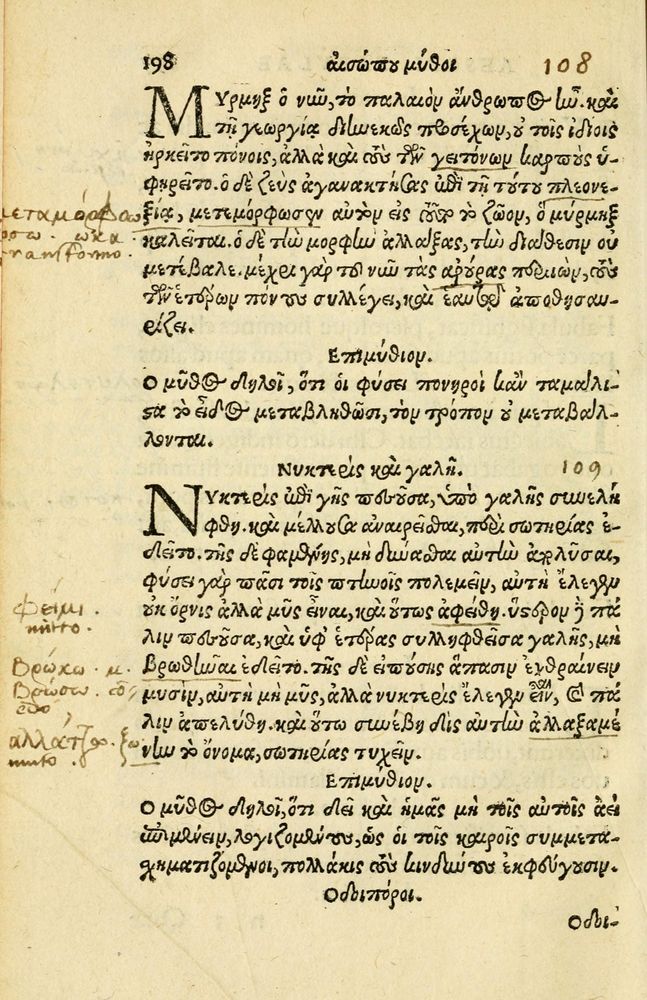 198 αἰσώπου μῦθοι 108
Μύρμηξ ὁ νῦν, τὸ παλαιὸν ἄνθρωπος ἦν. καὶ
τῇ γεωργίᾳ διηνεκῶς προσέχων, οὐ τοῖς ἰδίοις
ἠρκεῖτο πόνοις, ἀλλὰ καὶ τοὺς τῶν γειτόνων καρποὺς ὑ-
φῃρεῖτο. ὁ δὲ ζεὺς ἀγανακτήσας ἐπὶ τῇ τούτου πλεονε-
ξίᾳ, μετεμόρφωσεν αὐτὸν εἰς τοῦτο τὸ ζῶον, ὃ μύρμηξ
καλεῖται. ὁ δὲ τὴν μορφὴν ἀλλάξας, τὴν διάθεσιν οὐ
μετέβαλε. μέχρι γὰρ τοῦ νῦν τὰς ἀρούρας περιιὼν, τοὺς
τῶν ἑτέρων πόνους συλλέγει, καὶ ἑαυτῷ ἀποθησαυ-
ρίζει.
Ἐπιμύθιον.
Ὁ μῦθος δηλοῖ, ὅτι οἱ φύσει πονηροὶ κἂν ταμάλι-
στα τὸ εἶδος μεταβληθῶσι, τὸν τρόπον οὐ μεταβάλ-
λονται.
Νυκτερὶς καὶ γαλῆ. 109
Νυκτερὶς ἐπὶ γῆς πεσοῦσα, ὑπὸ γαλῆς συνελή
φθη. καὶ μέλλουσα ἀναιρεῖσθαι, περὶ σωτηρίας ἐ-
δεῖτο. τῆς δὲ φαμένης, μὴ δύνασθαι αὐτὴν ἀπολῦσαι,
φύσει γὰρ πᾶσι τοῖς πτηνοῖς πολεμεῖν, αὐτὴ ἔλεγεν
οὐκ ὄρνις ἀλλὰ μῦς εἶναι, καὶ οὕτως ἀφείθη. ὕστερον δὲ πά
λιν πεσοῦσα, καὶ ὑφ' ἑτέρας συλληφθεῖσα γαλῆς, μὴ
βρωθῆναι ἐδεῖτο. τῆς δὲ εἰπούσης ἅπασιν ἐχθραίνειν
μυσὶν, αὐτὴ μὴ μῦς, ἀλλὰ νυκτερὶς ἔλεγεν εἶναι, καὶ πά
λιν ἀπελύθη. καὶ οὕτω συνέβη δὶς αὐτὴν ἀλλαξαμέ
νην τὸ ὄνομα, σωτηρίας τυχεῖν.
Ἐπιμύθιον.
Ὁ μῦθος δηλοῖ, ὅτι δεῖ καὶ ἡμᾶς μὴ τοῖς αὐτοῖς ἀεὶ
ἐπιμένειν, λογιζομένους, ὡς οἱ τοῖς καιροῖς συμμετα-
σχηματιζόμενοι, πολλάκις τοὺς κινδύνους ἐκφεύγουσιν.
Ὁδοιπόροι.
Ὁδοι-
μεταμόρφοω
ωσω. ωκα
transformo.
φειμι.
mitto.
Βρώκω. μ.
Βρώσω.
edo
ἀλλάτζω. ξω
muto.